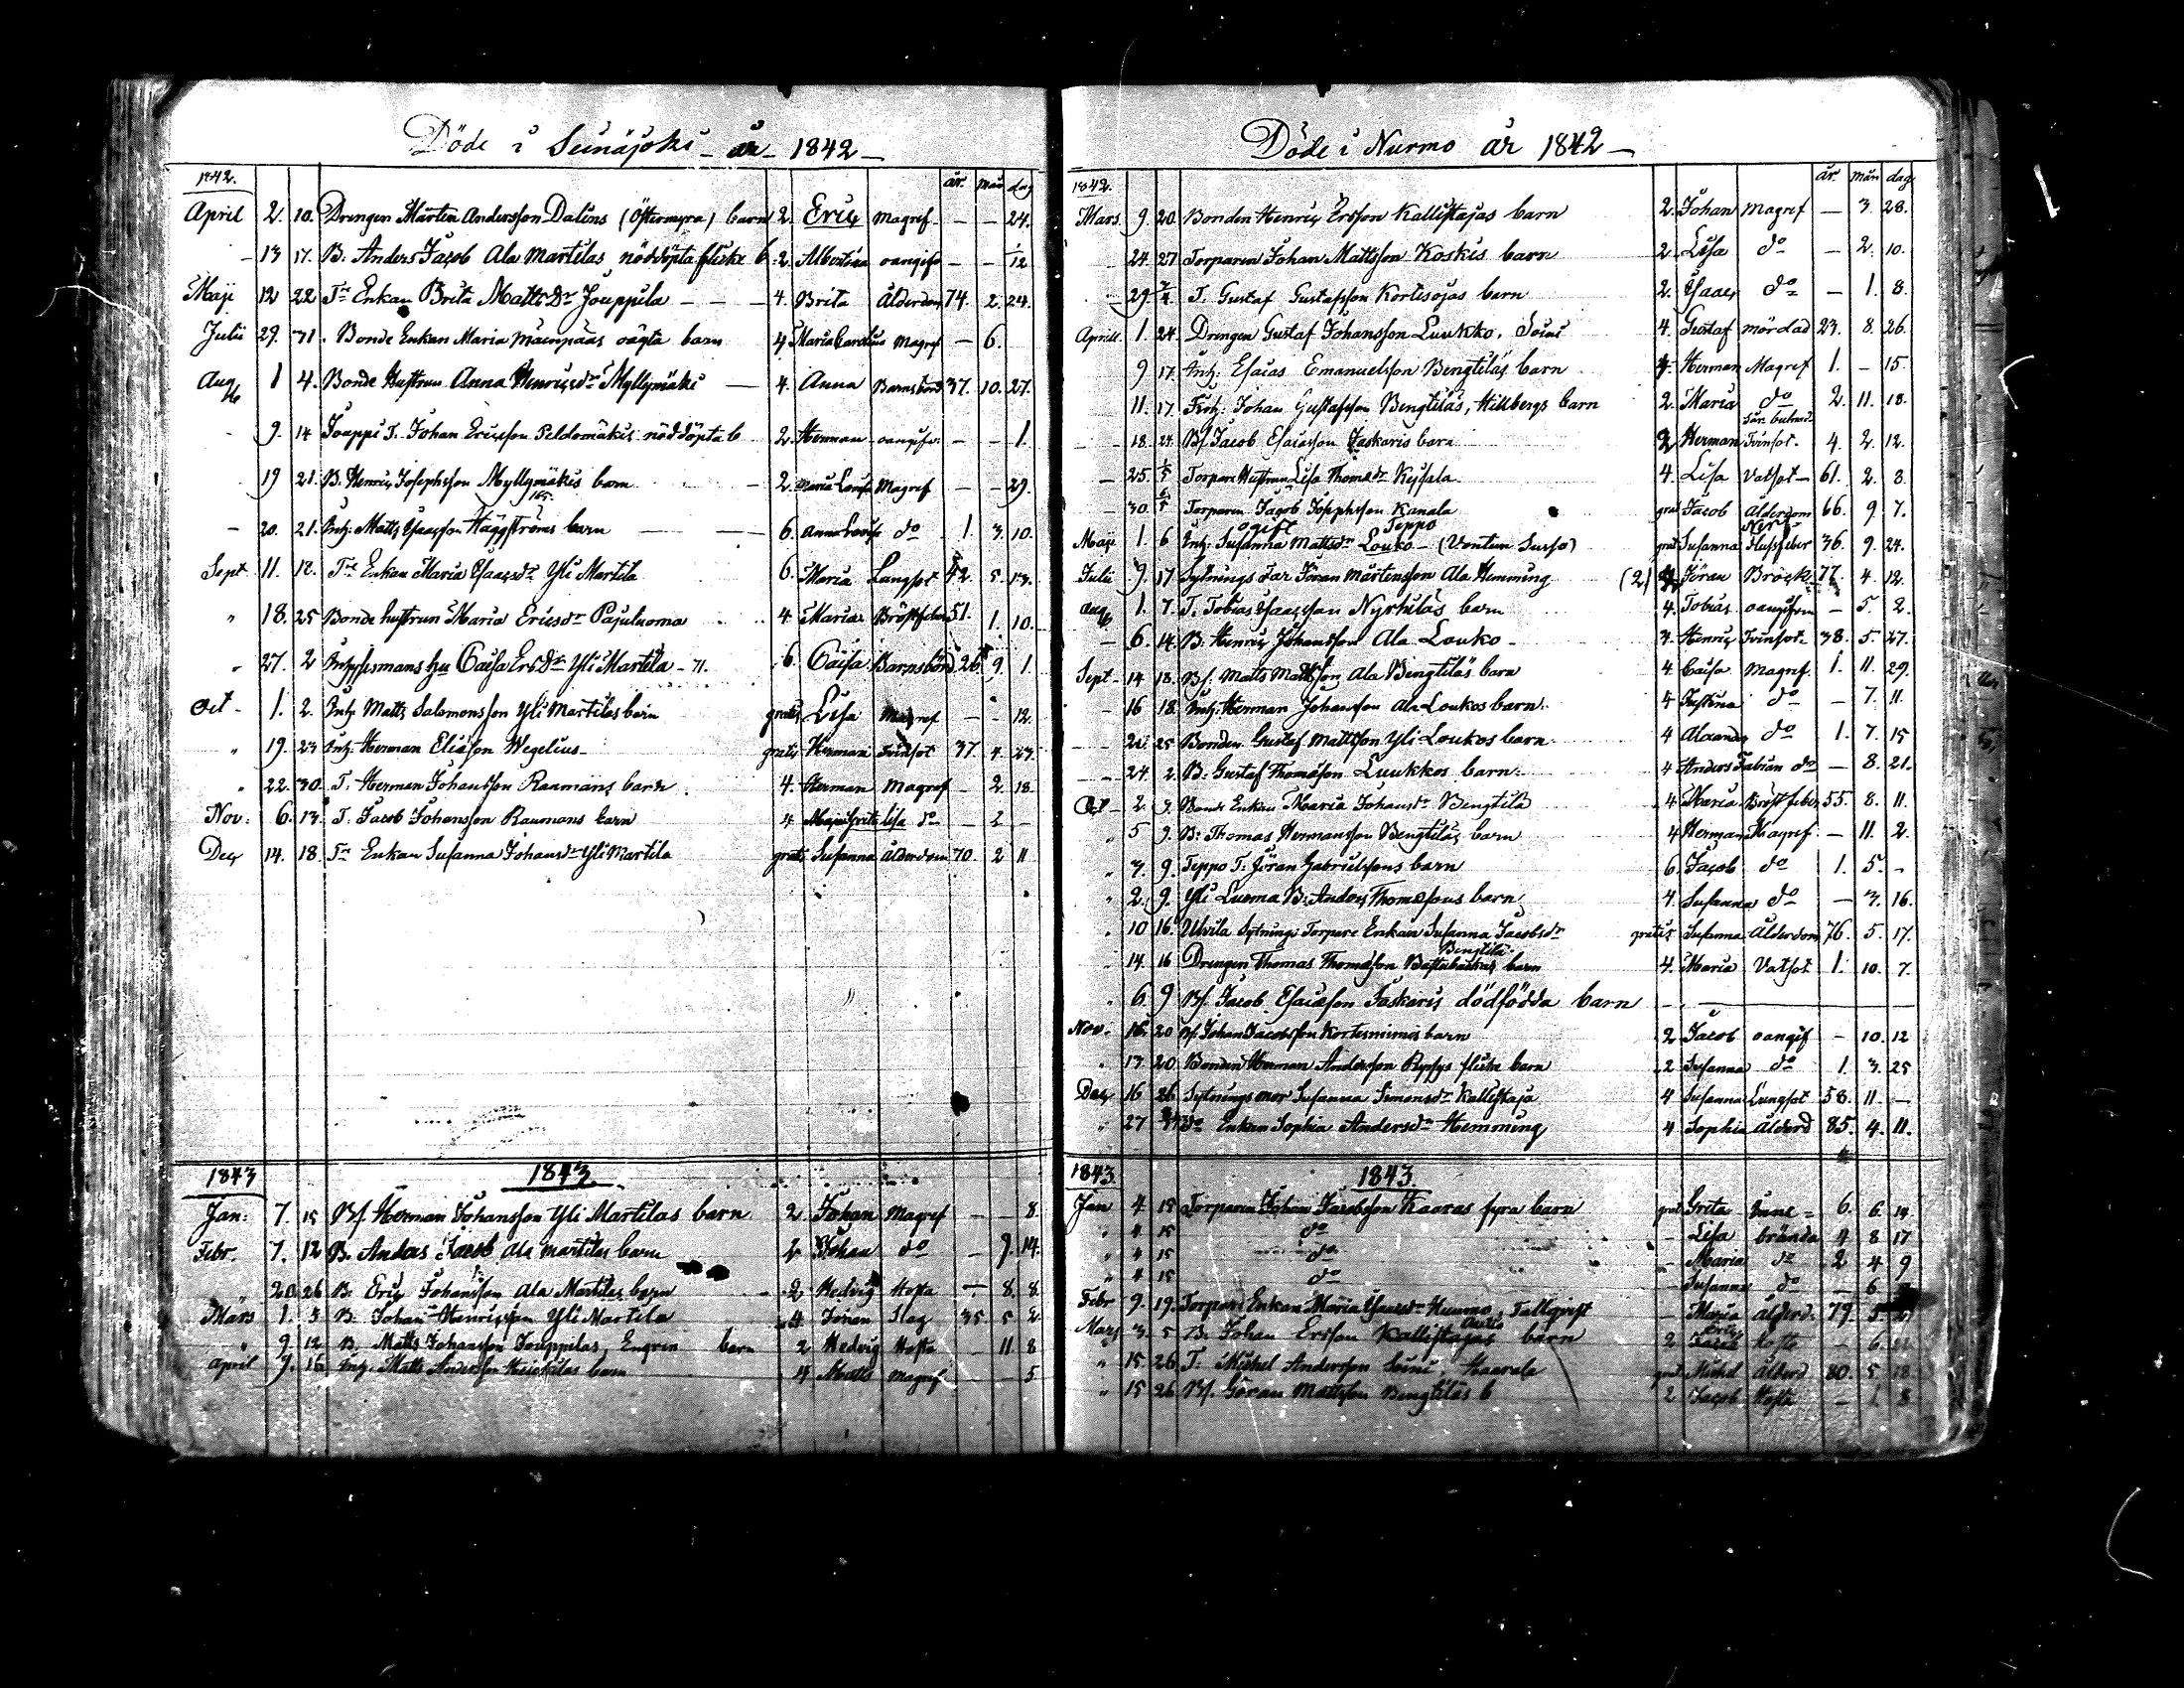 Döde i Seinäjoki år 1842
1842. år. mån dag
April 2. 10. Drengen Mårten Andersson Dalins (Östermyra) barn 2. Eric Magref — — 24.
— 13 17. B. Anders Jacob Ala Martilas nöddöpta flicke b. 2. Albertina oangifv — — 1/12
Maji 12 22 Enkan Brita Mattsdr Jouppila — — 4. Brita Ålderdom 74. 2. 24.
Julii 29. 31. Bonde Enkan Maria Mäenpääs oägta barn 4 Maria Carolina Magref — 6.
Aug 1 4. Bonde Hustrun Anna Henricsdr Myllymäki — 4. Anna Barnsbörd 37. 10. 27.
9. 14 Jouppi T. Johan Ericsson Peldomäkis nöddöpta b 2 Herman oangifv — — 1.
19 21. B. Henric Josephsson Myllymäkis barn 2. Maria Lovisa Magref — — 29.
— 20. 21. Inh: Matts Isaacsson Häggströms barn 6. Anna Lovisa do 1. 3. 10.
Sept 11. 12. Enkan Maria Esaiædr Yli Martila 6. Maria Lungsot 42. 5. 13.
" 18. 25 Bonde hustrun Maria Ericsdr Pajuluoma 4 Maria Bröstfeber 51. 1. 10.
" 27. 2 Inhysesmans hu Caisa Ersdr Yli Martila 6. Caisa Barnsbörd 26 9 1.
Oct 1. 2. Inh: Matts Salomonsson Yli Martilas barn gratis Lisa Magref — — 12.
" 19. 23 Inh: Herman Eliæson Wegelius gratis Herman Tvinsot 37 4. 23.
" 22. 30. T. Herman Johansson Raamans barn 4. Herman Magref — 2. 18.
Nov: 6. 13. T. Jacob Johansson Raumans barn 4 Maja Greta Lisa do — 2 —
Dec 14. 18. Enkan Susanna Johansdr Yli Martila gratis Susanna Ålderdom 70. 2 11
1843 1843.
Jan: 7. 15 Bs. Herman Johansson Yli Martilas barn 2 Johan Magref — — 8.
Febr. 7. 12 B. Anders Jacob Ala Martilas barn 2 Johan do — 9. 14.
" 20 26 B. Eric Johansson Ala Martilas barn 2 Hedvig Hosta — 8. 8.
Mars 1. 5 B. Johan Henricsson Yli Martila 4 Johan Slag 35 5 2
" 9. 12 B. Matts Johansson Jouppilas, Engren barn 2 Hedvig Hosta — 11 8
April 9. 16 Inh: Matts Andersson Heickilas barn 4 Matts Magref — — 5
Döde i Nurmo år 1842
1842. år. mån dag
Mars 9. 20. Bonden Henric Ersson Kallistajas barn 2. Johan Magref — 3. 28.
24. 27 Torparen Johan Mattsson Koskis barn 2. Lisa do — 2. 10.
29. T. Gustaf Gustafsson Kortesojas barn 2. Isaac do — 1. 8.
Aprill 1. 24. Drengen Gustaf Johansson Luukko. Soini 4. Gustaf mördad 23. 8. 26.
9 17. Inh: Esaias Emanuelsson Bengtiläs barn 4. Herman Magref 1. — 15.
11. 17. Inh: Johan Gustafsson Bengtiläs, Hillbergs barn 2. Maria do 2. 11. 18.
18. 24. Bs. Jacob Esaiæson Jaskaris barn 2 Herman Tvinsot. 4. 2. 12.
— 25. 1/5 Torpare Hustrun Lisa Thomædr 4. Lisa Vatsot — 61. 2. 8.
— 30. Torparen Jacob Josephsson Kanala grat Jacob Ålderdom 66. 9 7.
ogift Teppo
Maji 1. 6 Inh: Susanna Mattsdr Louko grat Susanna Nervfeber 36. 9. 24.
Julii 9. 17 Sytnings Far Jöran Mårtensson Ala Hemming (2) Jöran Bråck 77. 4. 12.
Aug 1. 7. T. Tobias Isaacsson Nyrhiläs barn 4. Tobias oangifven — 5. 2.
— 6. 14. B. Henric Johansson Ala Louko 4. Henric Tvinsot. 38. 5. 27.
Sept — 14 18. Bs. Matts Mattsson Ala Bengtiläs barn 4 Caisa Magref. 1. 11. 29.
— 16 18. Inh: Herman Johansson Ala Loukos barn. 4 Justina do — 7. 11.
— 21. 25 Bonden Gustaf Mattsson Yli Loukos barn 4 Alexander do 1. 7. 15
— 24. 2. B. Gustaf Thomæson Luukkos barn 4 Anders Fabian do — 8. 21.
Oct — 2. 9. Bonde Enkan Maria Johansdr Bengtilä 4 Maria Bröstfeber 55. 8. 11.
" 5 9. B. Thomas Hermansson Bengtiläs barn 4 Herman Magref. — 11. 2.
" 7. 9. Teppo T. Jöran Gabrielssons barn 6. Jacob do 1. 5. —
" 2. 9. Yli Luoma B. Anders Thomæsons barn 4. Susanna do — 3. 16.
" 10 16. Sytnings Torpare Enkan Susanna Jacobsdr gratis Susanna Ålderdom 76. 5. 17.
Bengtilä
" 14. 16 Drengen Thomas Thomæson barn 4. Maria Vatsot 1. 10. 7.
" 6. 9 Bs. Jacob Esaiæson Jaskaris dödfödda barn
Nov. 16. 20 Bs. Johan Jacobsson Kortesniemis barn 2 Jacob oangif — 10. 12
" 13 20. Bonden Herman Andersson flicke barn 2 Susanna do 1. 3. 25
Dec 16 26 Sytnings mor Susanna Simonsdr Kallistaja 4 Susanna Lungsot 58. 11. —
" 27 do Enkan Sophia Andersdr Hemming 4 Sophia Ålderd 85. 4. 11.
1843. 1843.
Jan 4 15 Torparen Johan Jacobsson Kaaras fyra barn grat Greta Inne= 6. 6. 14
" 4 15 do — Lisa brända 4 8 17
" 4 15 do — Maria do 2 4 9
" 4 15 do — Susanna do — 6
Febr 9. 19. Torpare Enkan Maria Isaacsdr — Maria Ålderd. 79. 5.
Mars 3. 5 B. Johan Ersson Kallistajas barn 2 Hosta — 6
" 15. 26 T. Michel Andersson Soini, Haarala grat Michel Ålderd 80. 5 18
" 15 26 Bs. Göran Mattsson Bengtiläs b 2 Jacob Hosta — 1 8